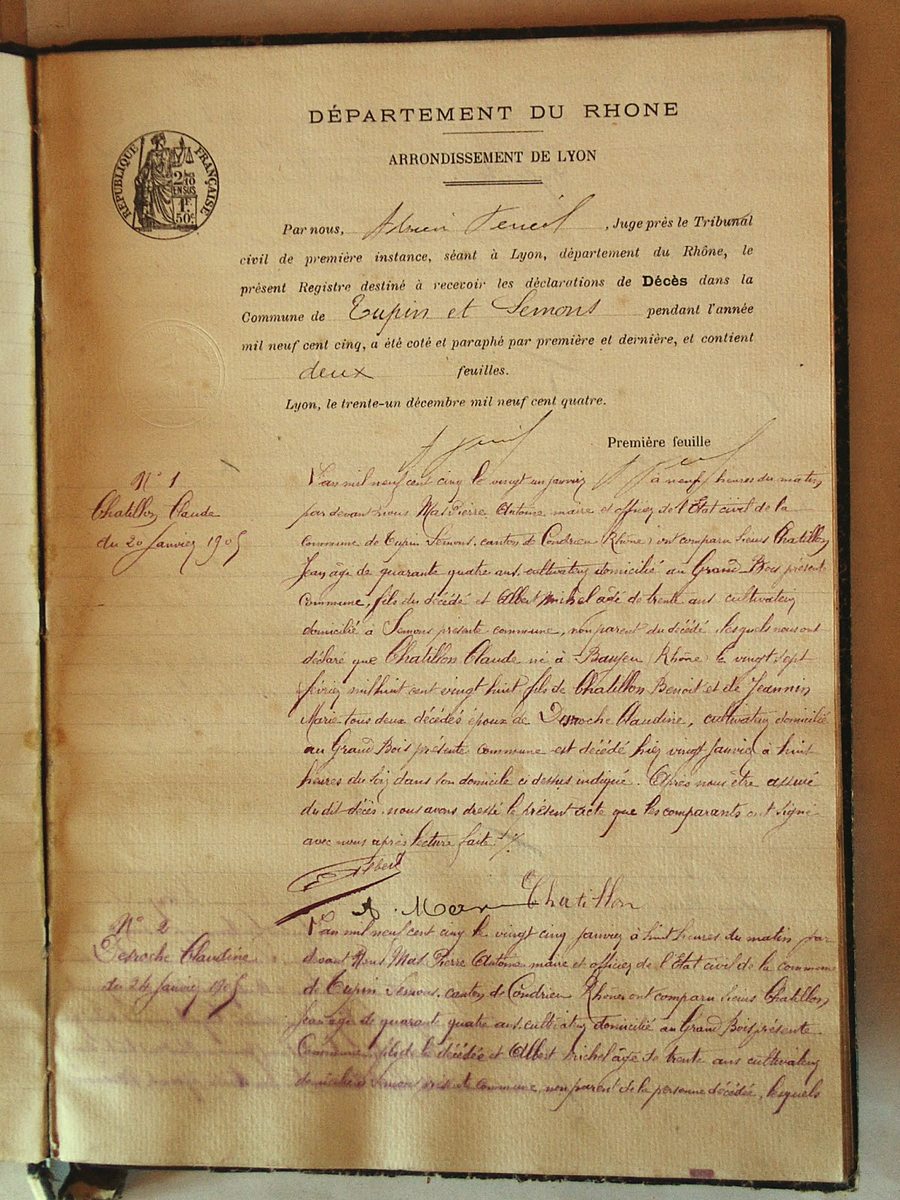 DÉPARTEMENT DU RHONE
ARRONDISSEMENT DE LYON
RÉPUBLIQUE FRANÇAISE
2/10
EN SUS
1F
50c
Par nous, Adrien , Juge près le Tribunal
civil de première instance, séant à Lyon, département du Rhône, le
présent Registre destiné à recevoir les déclarations de Décès dans la
Commune de Tupin et Semons pendant l'année
mil neuf cent cinq, a été coté et paraphé par première et dernière, et contient
deux feuilles.
Lyon, le trente-un décembre mil neuf cent quatre.
Première feuille
N° 1
Chatillon Claude
du 20 Janvier 1905
L'an mil neuf cent cinq le vingt un janvier à neuf heures du matin,
par devant nous Mas Pierre Antoine maire et officier de l'Etat civil de la
commune de Tupin Semons, canton de Condrieu (Rhône) ont comparu sieurs Chatillon
Jean âgé de quarante quatre ans, cultivateur domicilié au Grand-Bois présente
commune, fils du décédé et Albert Michel agé de trente ans cultivateur
domicilié à Semons présente commune, non parent du décédé, lesquels nous ont
déclaré que Chatillon Claude né à Beaujeu (Rhône) le vingt sept
février mil huit cent vingt huit, fils de Chatillon Benoit et de Jeannin
Marie tous deux décédés époux de Desroche Claudine, cultivateur domicilié
au Grand Bois présente commune est décédé hier vingt janvier à huit
heures du soir dans son domicile ci dessus indiqué. Après nous être assuré
du dit décès, nous avons dressé le présent acte que les comparants ont signé
avec nous après lecture faite
Albert
A. Mas Chatillon
N° 2
Desroche Claudine
du 24 Janvier 1905
L'an mil neuf cent cinq le vingt cinq janvier à huit heures du matin, par
devant Nous Mas Pierre Antoine maire et officier de l'Etat civil de la commune
de Tupin Semons, canton de Condrieu Rhône ont comparu sieurs Chatillon
Jean âgé de quarante quatre ans, cultivateur domicilié au Grand Bois présente
Commune, fils de la décédée et Albert Michel âgé de trente ans cultivateur
domicilié à Semons présente commune, non parent de la personne décédée, lesquels